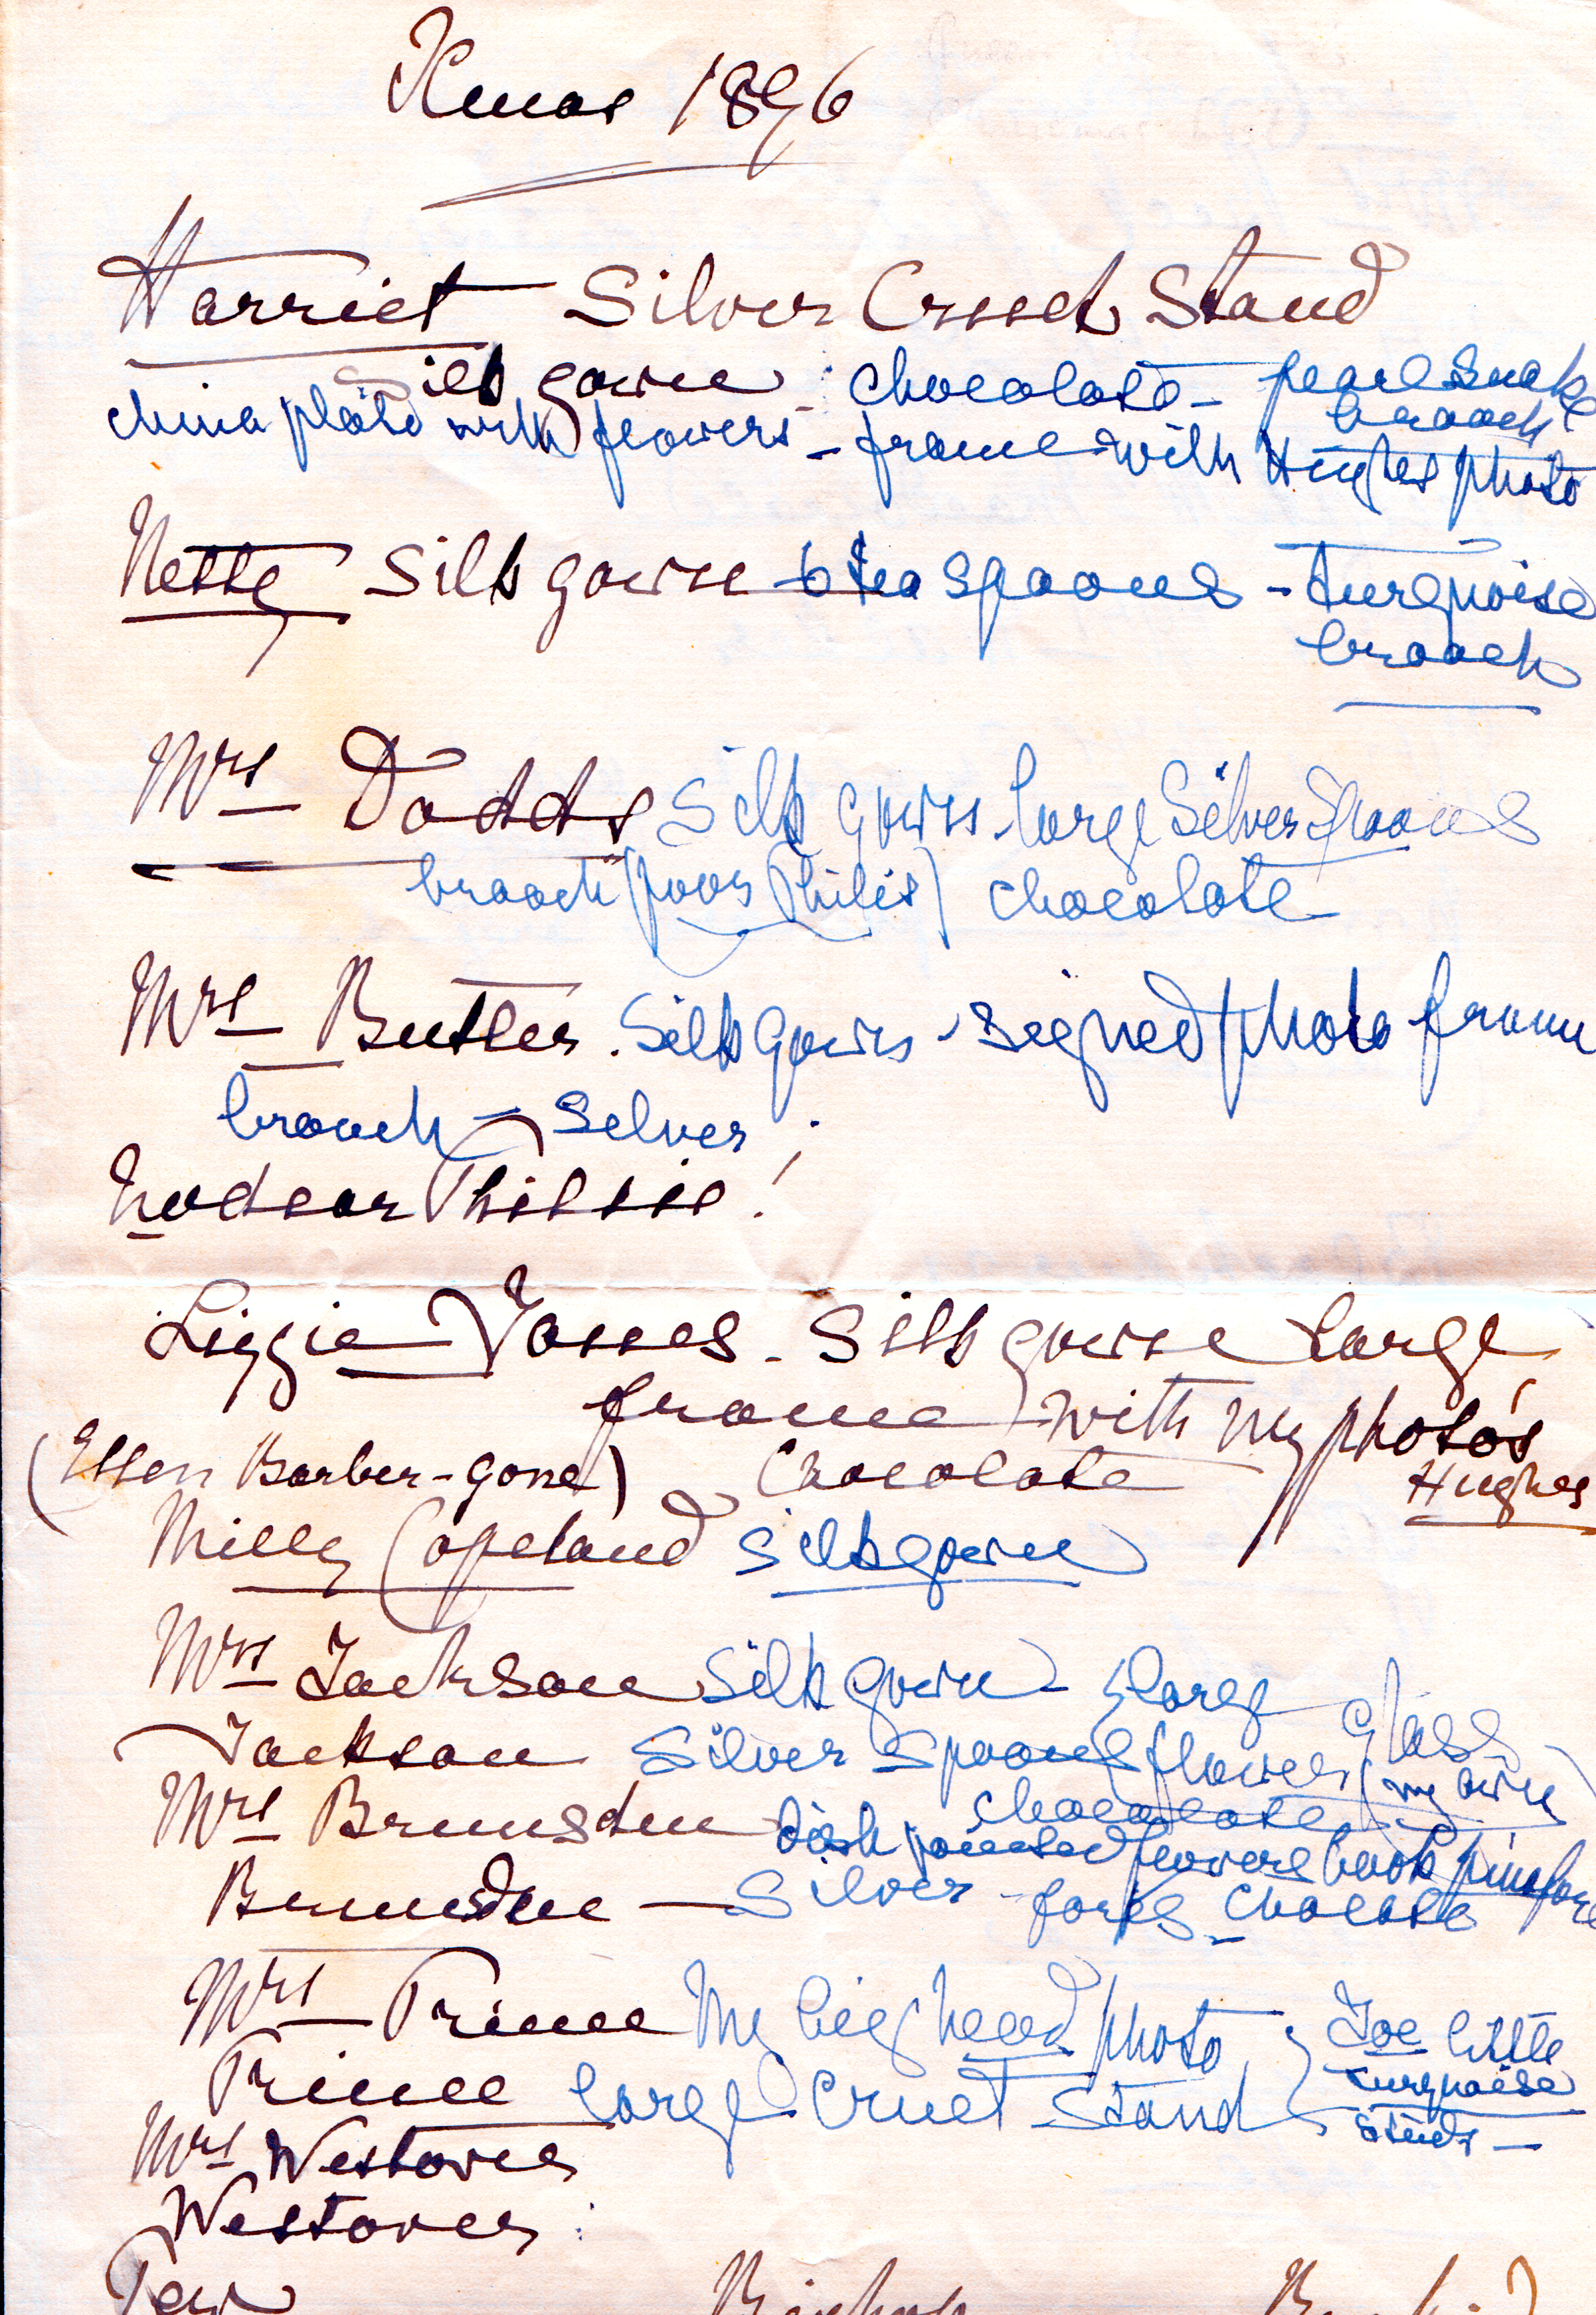 Xmas 1896
Harriet Silver Cruet Stand
Silk gown - chocolate - pearl snake
brooch
china plate with flowers - frame with Hughes photo
Netty Silk gown 6 tea spoons - turquoise
brooch
Mrs Dodds Silk gown - large Silver Spoons
brooch (poor Philis) chocolate
Mrs Butler. Silk gown - signed photo frame
brooch - Silver
No dear Phillis!
Lizzie Jones - Silk gown large
frame with my photo's
Hughes
(Ellen Barber - gone) Chocolate
Milly Copeland silk gown
Mrs Jackson Silk gown - large glass
Jackson Silver Spoons flowers (my own)
chocolate
Mrs Brunsden dish painted flowers book pinafore
Brunsden - Silver - forks - chocolate
Mrs Prince My big head photo Joe little
Prince large Cruet Stand turquoise
studs -
Mrs Westover
Westover